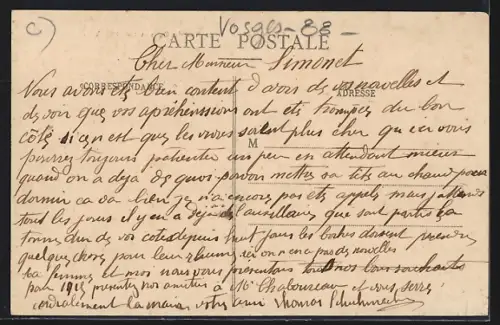 Vosges - 88 -
CARTE POSTALE
Cher Monsieur Simonet
CORRESPONDANCE
ADRESSE
M
Nous avons etes bien content d'avoir de vos nouvelles et
de voir que vos aprehensions ont etes trompes du bon
côté si ce n'est que les vivres soient plus cher qu'ici vous
pourrez toujours patienter un peu en attendant mieux
quand on a deja de quoi pouvoir mettre sa tête au chaud pour
dormir ca va bien je n'ai encore pas ete appele mais j'attends
tout les jours il y en a deja de l'auxilliaire que sont partis ca
tonne dur de vos cotes depuis huit jours les boches doivent prendre
quelque chose pour leur rhume ici on en a pas de nouvelles
ma femme et moi nous vous presentons tous nos bons souhaits
pour 1915 presentez nos amities a Mr Chaboureau et vous serre
cordialement la main votre ami